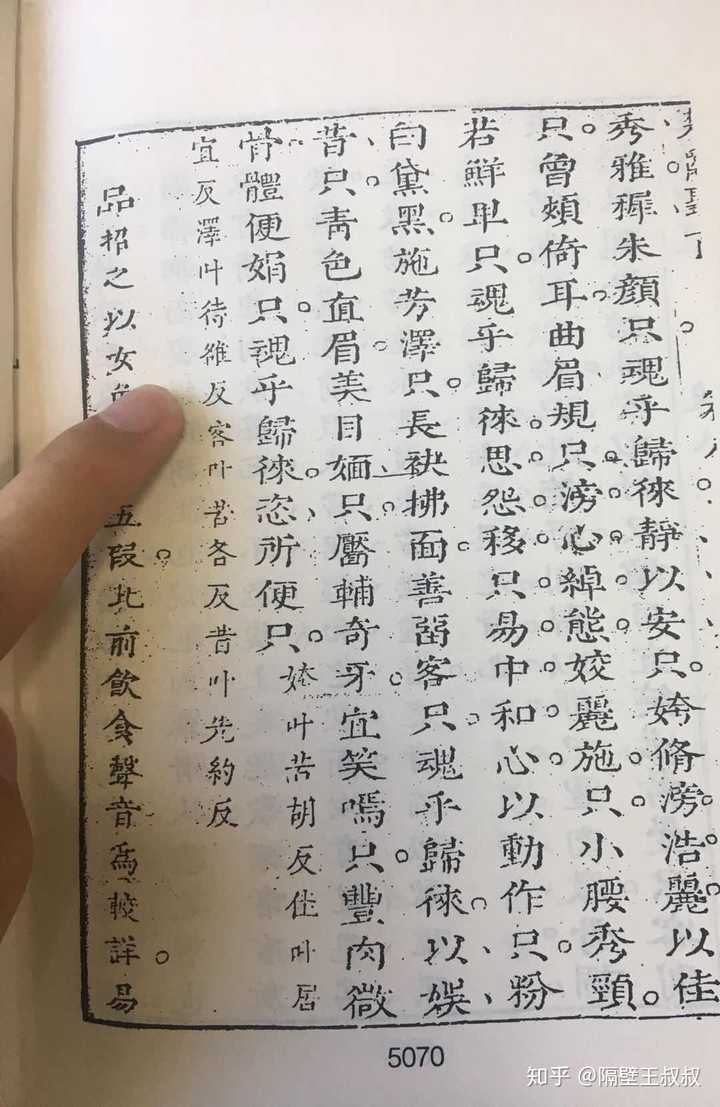 秀雅穉朱顏只魂乎歸徠靜以安只姱脩滂浩麗以佳
只。曾頰倚耳。曲眉規只。滂心綽態。姣麗施只。小腰秀頸。
若鮮卑只。魂乎歸徠。思怨移只。易中和心。以動作只。粉
白黛黑。施芳澤只。長袂拂面。善畱客只。魂乎歸徠。以娛
昔只。青色直眉。美目媔只。靨輔奇牙。宜笑嘕只。豐肉微
骨。體便娟只。魂乎歸徠。恣所便只。姱叶苦胡反佳叶居
宜反澤叶待雒反客叶苦各反昔叶先約反
品招之以女五段。比前飲食聲音為較詳。易
5070
知乎 @隔壁王叔叔